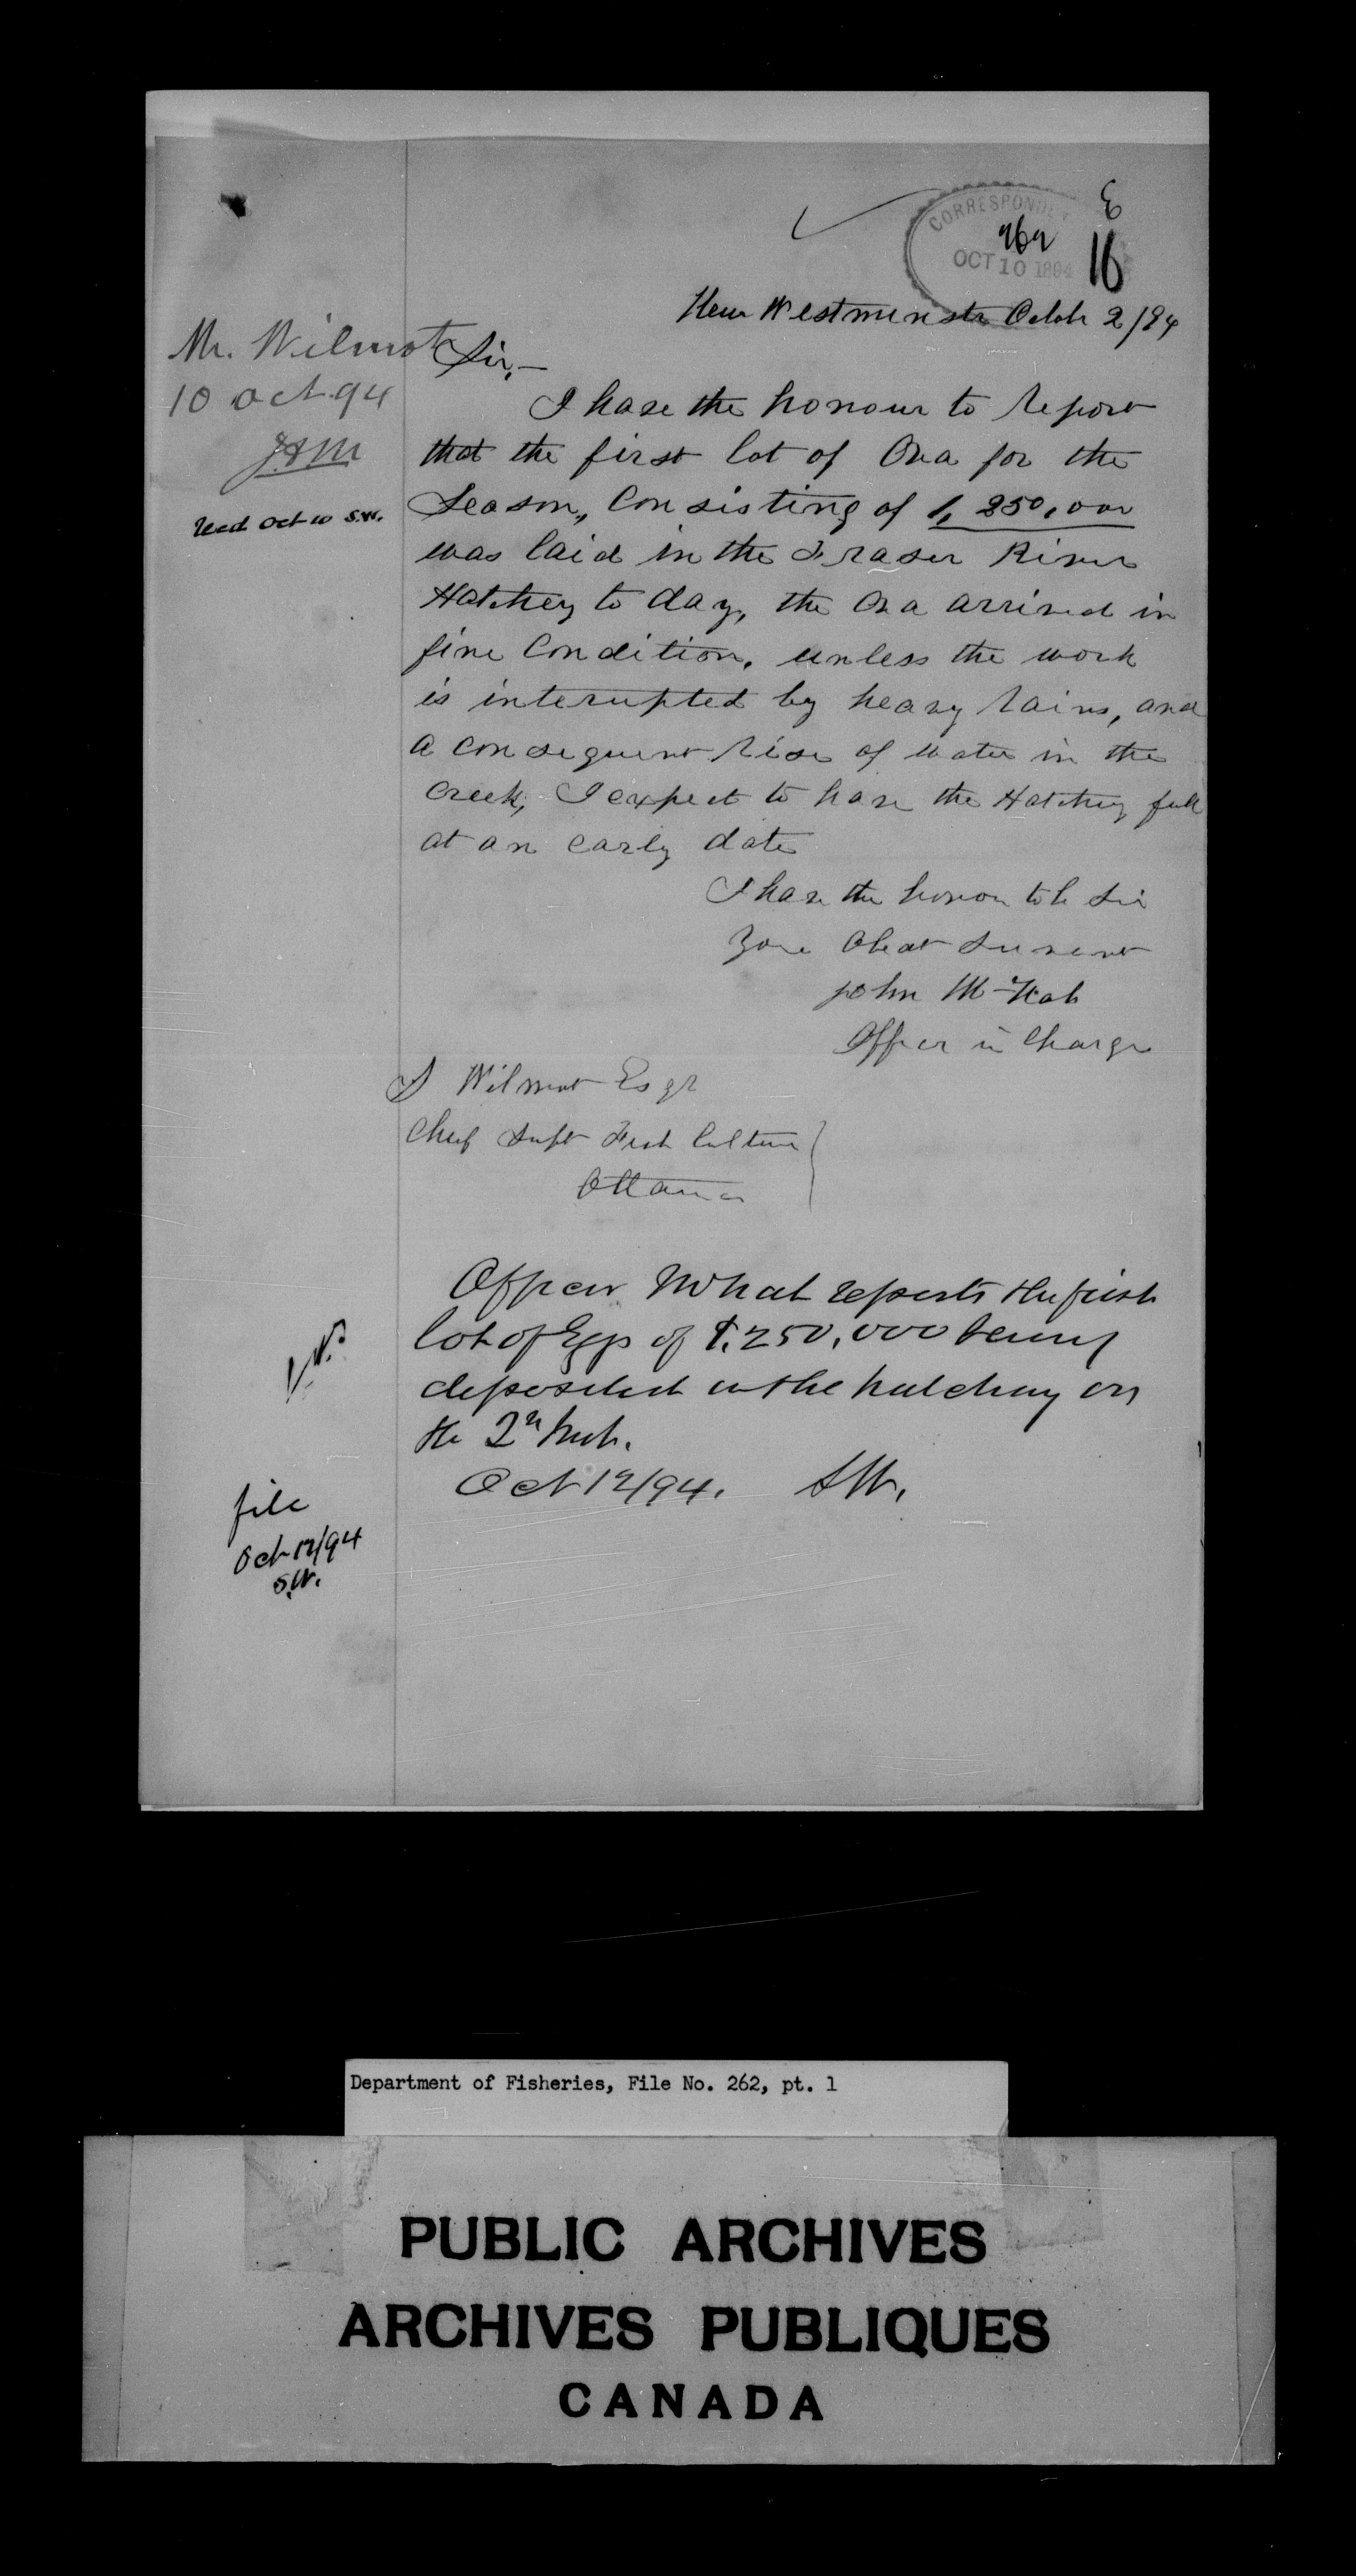 CORRESPONDE
969
OCT 10 1894
E
16
New Westminster Octobr 2/94
Mr. Wilmot
10 Oct. 94
Recd Oct 10 S.W.
Sir,—
I have the honour to report
that the first lot of Ova for the
Season, Consisting of 1,250,000
was laid in the Fraser River
Hatchery to day, the Ova arrived in
fine Condition, unless the work
is interupted by heavy rains, and
a consequent rise of water in the
Creek, I expect to have the Hatchery full
at an early date
I have the honour to be Sir
Your Obedt Servant
John McNab
Officer in Charge
S Wilmot Esqr
Chief Supt Fish Culture
Ottawa
Officer McNab reports the first
lot of Eggs of 1,250,000 being
deposited in the hatchery on
the 2nd Inst.
Oct 12/94. SW.
file
Oct 12/94
S.W.
Department of Fisheries, File No. 262, pt. 1
PUBLIC ARCHIVES
ARCHIVES PUBLIQUES
CANADA